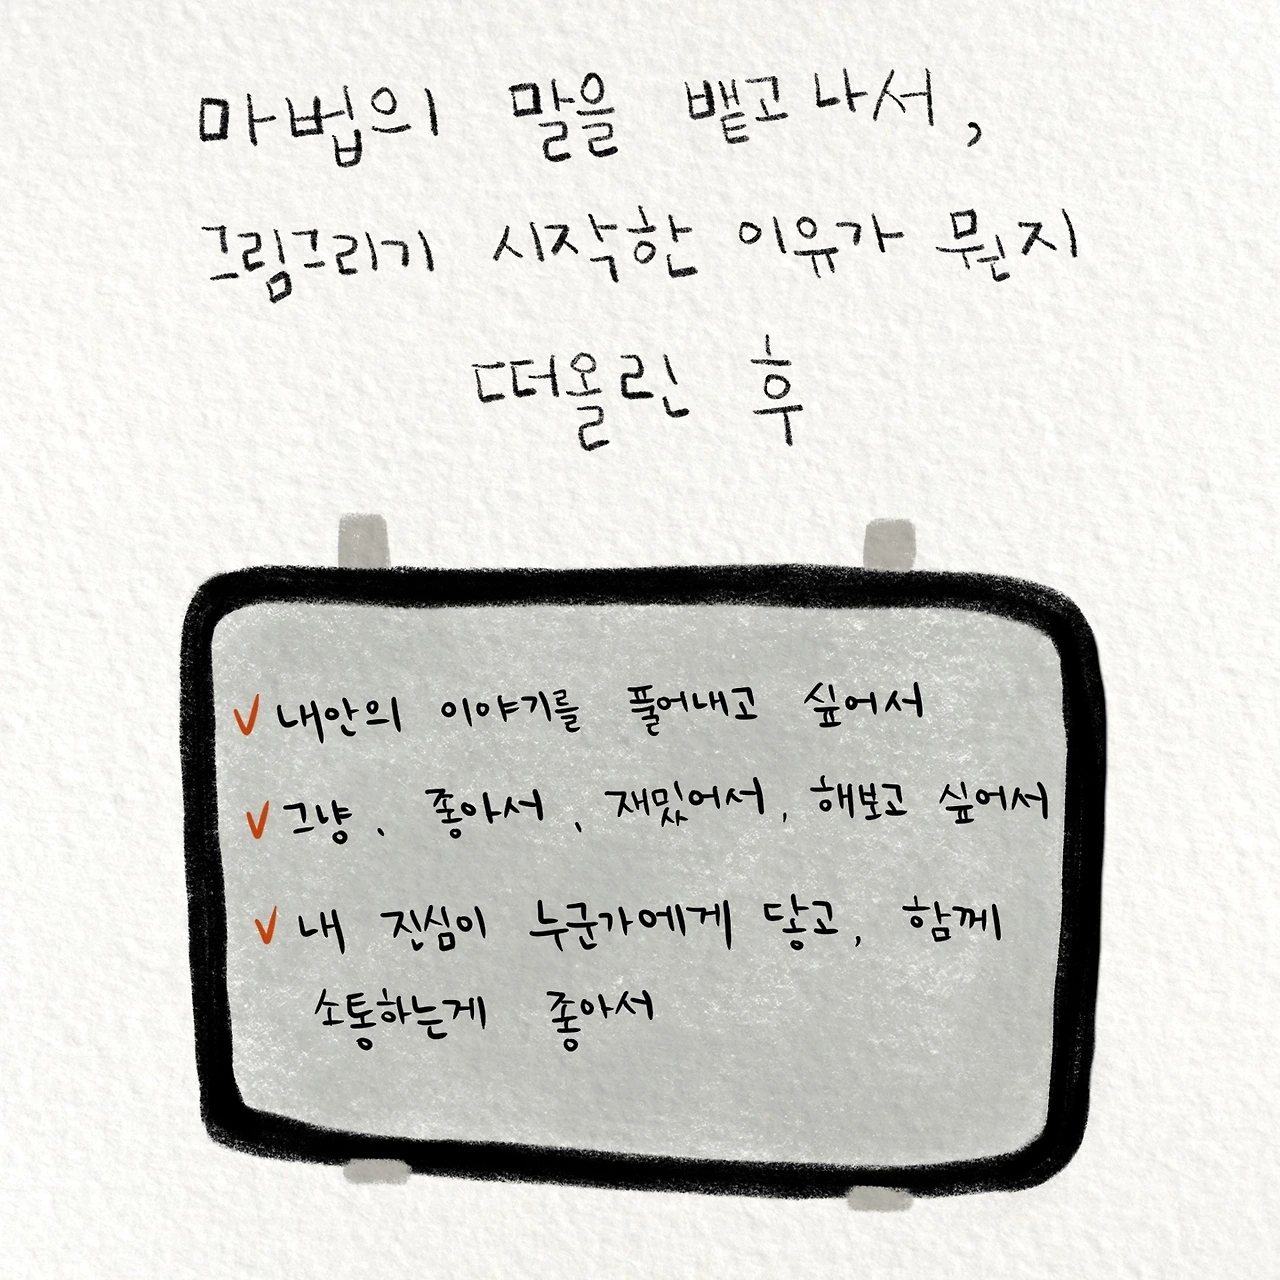 마법의 말을 뱉고 나서,
그림그리기 시작한 이유가 뭔지
떠올린 후
✓ 내안의 이야기를 풀어내고 싶어서
✓ 그냥, 좋아서, 재밌어서, 해보고 싶어서
✓ 내 진심이 누군가에게 닿고, 함께
소통하는게 좋아서